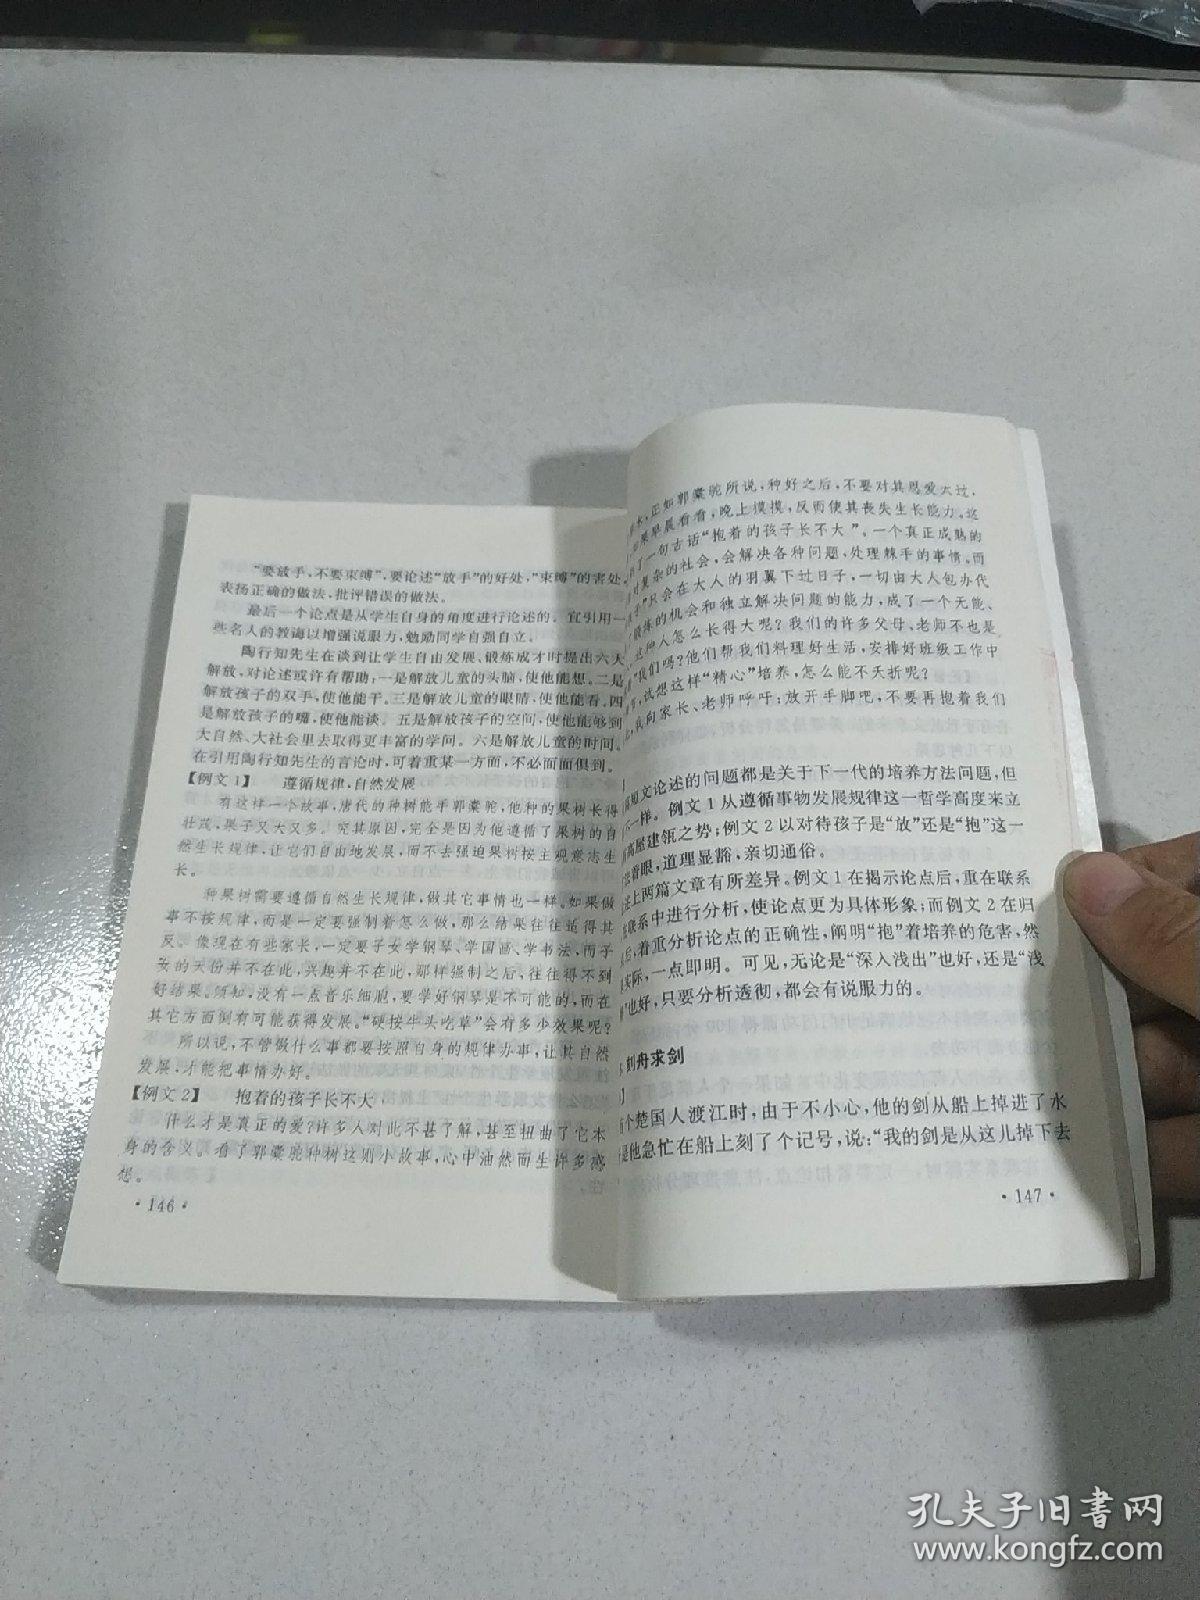 “要放手，不要束缚”，要论述“放手”的好处，“束缚”的害处，
表扬正确的做法，批评错误的做法。
最后一个论点是从学生自身的角度进行论述的。宜引用一
些名人的教诲以增强说服力，勉励同学自强自立。
陶行知先生在谈到让学生自由发展、锻炼成才时提出六大
解放，对论述或许有帮助：一是解放儿童的头脑，使他能想。二是
解放孩子的双手，使他能干。三是解放儿童的眼睛，使他能看。四
是解放孩子的嘴，使他能谈。五是解放孩子的空间，使他能够到
大自然、大社会里去取得更丰富的学问。六是解放儿童的时间。
在引用陶行知先生的言论时，可着重某一方面，不必面面俱到。
【例文1】 遵循规律，自然发展
有这样一个故事，唐代的种树能手郭橐驼，他种的果树长得
壮茂，果子又大又多。究其原因，完全是因为他遵循了果树的自
然生长规律，让它们自由地发展，而不去强迫果树按主观意志生
长。
种果树需要遵循自然生长规律，做其它事情也一样。如果做
事不按规律，而是一定要强制着怎么做，那么结果往往适得其
反。像现在有些家长，一定要子女学钢琴、学国画、学书法，而子
女的天份并不在此，兴趣并不在此，那样强制之后，往往得不到
好结果。须知，没有一点音乐细胞，要学好钢琴是不可能的，而在
其它方面倒有可能获得发展。“硬按牛头吃草”会有多少效果呢？
所以说，不管做什么事都要按照自身的规律办事，让其自然
发展，才能把事情办好。
【例文2】 抱着的孩子长不大
什么才是真正的爱？许多人对此不甚了解，甚至扭曲了它本
身的含义。看了郭橐驼种树这则小故事，心中油然而生许多感
想。
·146·
，正如郭橐驼所说，种好之后，不要对其恩爱太过，
如果早晨看看，晚上摸摸，反而使其丧失生长能力。这
了一句古话“抱着的孩子长不大”。一个真正成熟的
对复杂的社会，会解决各种问题，处理棘手的事情。而
子”只会在大人的羽翼下过日子，一切由大人包办代
锻炼的机会和独立解决问题的能力，成了一个无能、
这种人怎么长得大呢？我们的许多父母、老师不也是
“我们吗？他们帮我们料理好生活，安排好班级工作中
，试想这样“精心”培养，怎么能不夭折呢？
，我向家长、老师呼吁：放开手脚吧，不要再抱着我们
】
短文论述的问题都是关于下一代的培养方法问题，但
不一样。例文1从遵循事物发展规律这一哲学高度来立
高屋建瓴之势；例文2以对待孩子是“放”还是“抱”这一
着眼，道理显豁，亲切通俗。
上两篇文章有所差异。例文1在揭示论点后，重在联系
联系中进行分析，使论点更为具体形象；而例文2在归
后，着重分析论点的正确性，阐明“抱”着培养的危害，然
实际，一点即明。可见，无论是“深入浅出”也好，还是“浅
”也好，只要分析透彻，都会有说服力的。
刻舟求剑
】
个楚国人渡江时，由于不小心，他的剑从船上掉进了水
是他急忙在船上刻了个记号，说：“我的剑是从这儿掉下去
·147·
孔夫子旧书网
www.kongfz.com